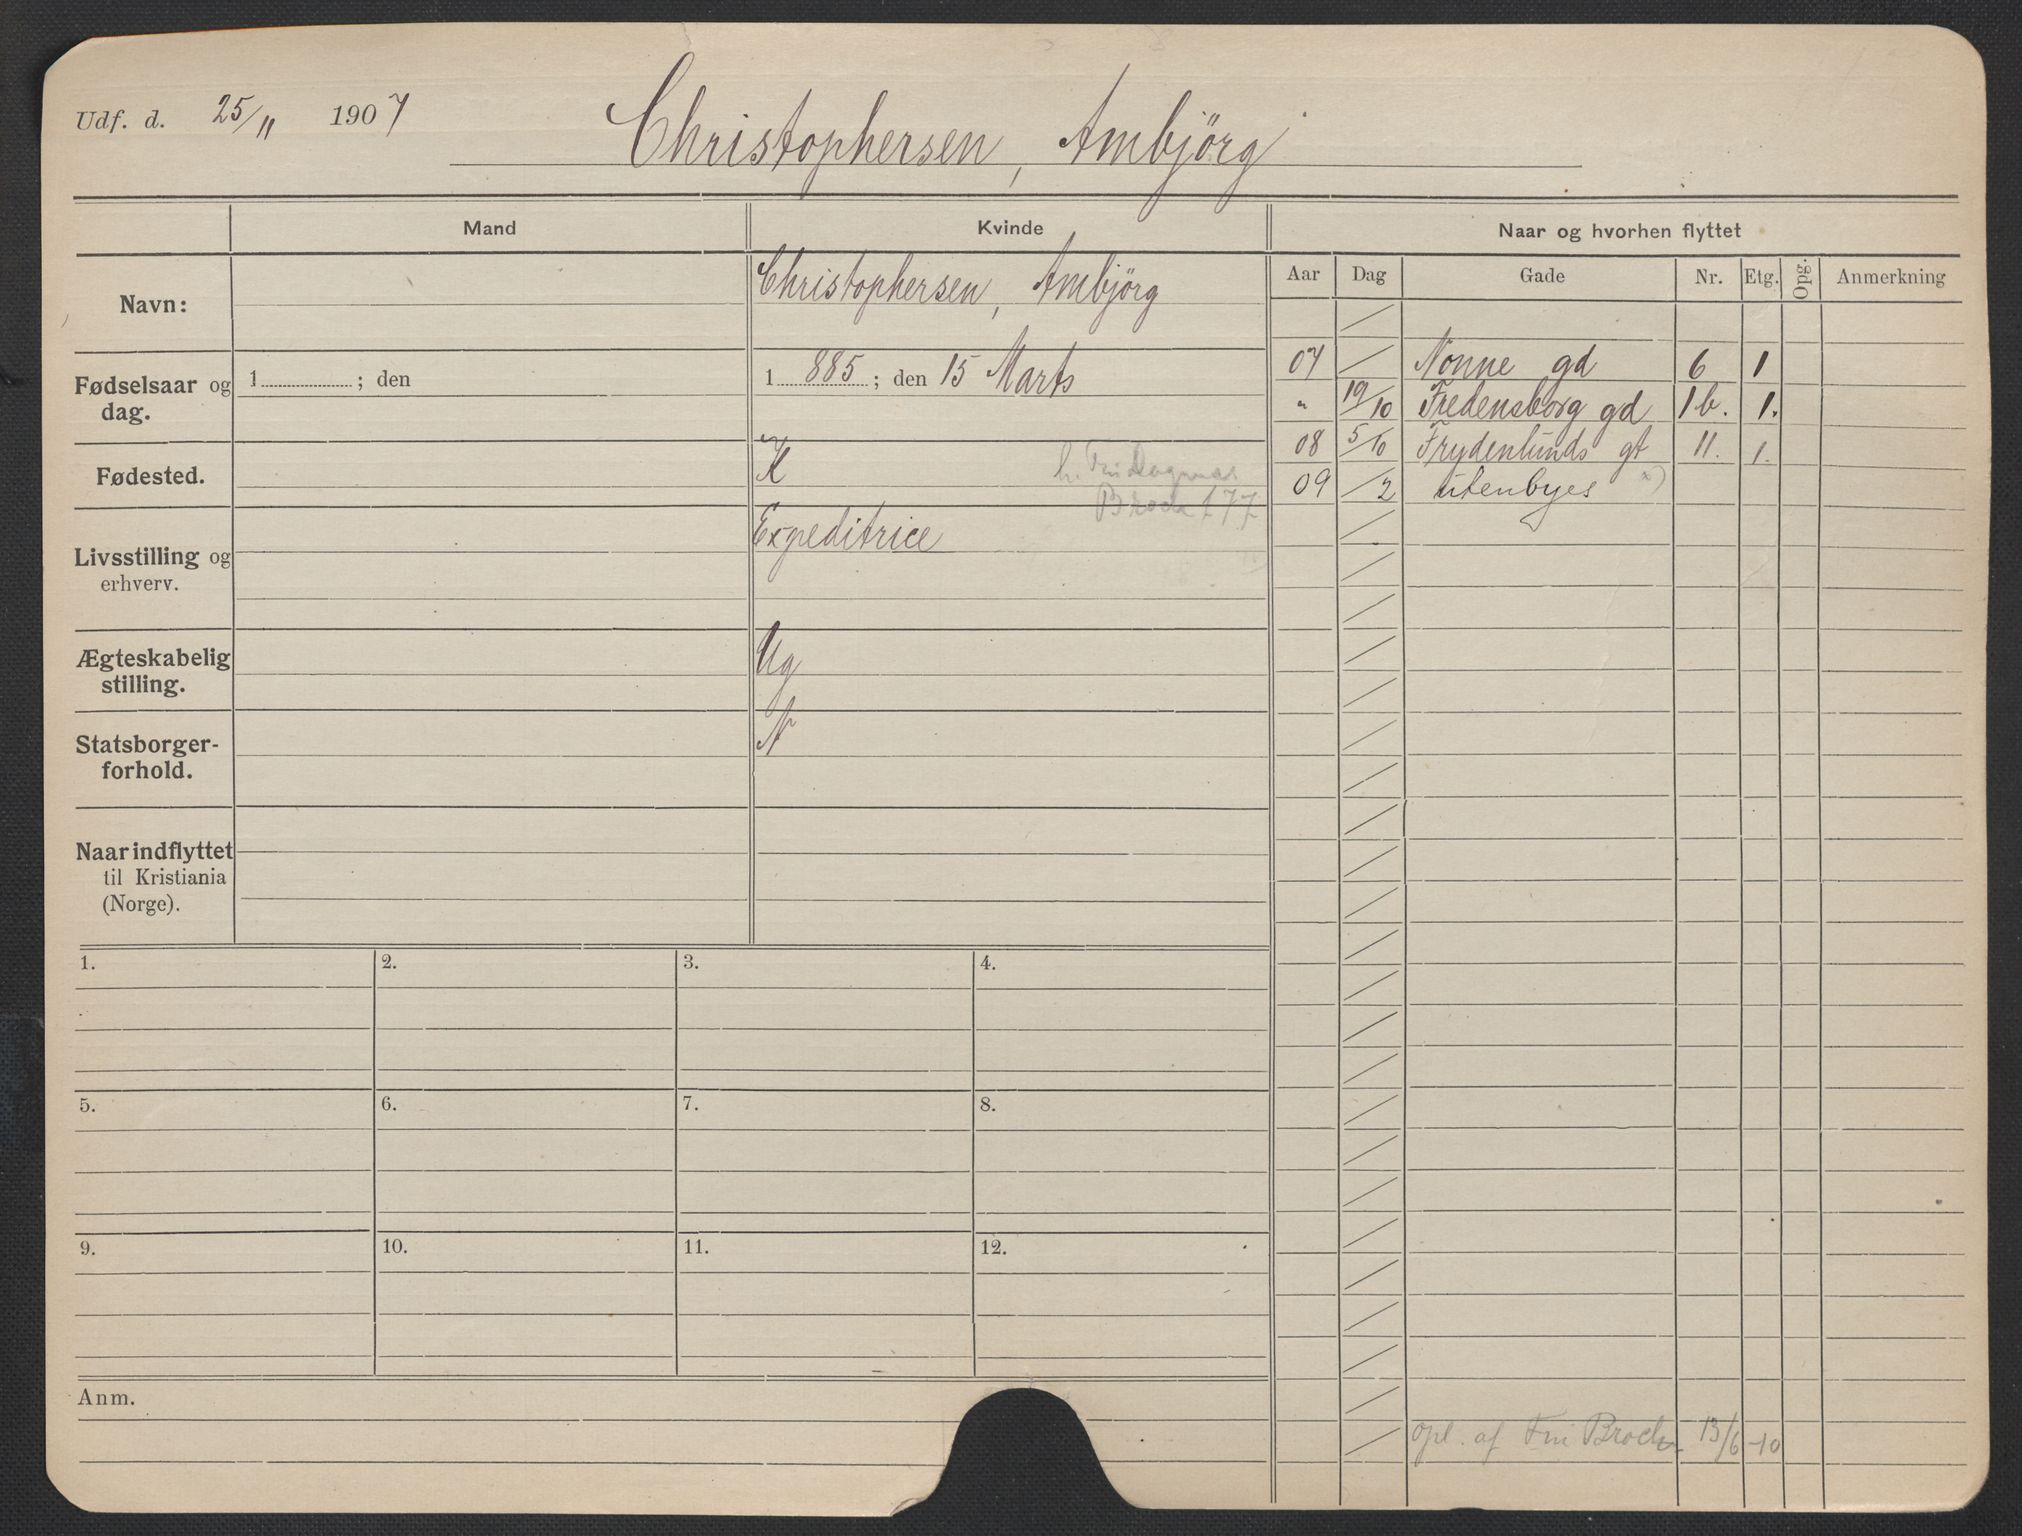 Udf. d. 25/11 1907
Christophersen, Ambjörg
Mand
Kvinde
Naar og hvorhen flyttet
Aar Dag Gade Nr. Etg. Opg. Anmerkning
Navn:
Christophersen, Ambjörg
Fødselsaar og
dag.
1 ; den
1 885 ; den 15 Marts
Fødested.
K
h. Fru Dagmar
Broch f 77
Livsstilling og
erhverv.
Expeditrice
Ægteskabelig
stilling.
Ug
Statsborger-
forhold.
N
Naar indflyttet
til Kristiania
(Norge).
07 / Nonne gd 6 1
" 19/10 Fredensborg gd 1 b. 1.
08 5/10 Frydenlunds gt 11. 1.
09 /2 utenbyes x)
1.
2.
3.
4.
5.
6.
7.
8.
9.
10.
11.
12.
Anm.
opl. af Fru Broch 13/6-10